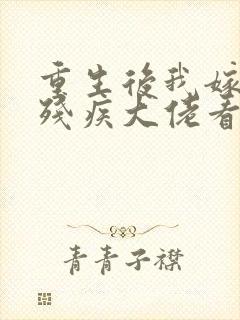 重生後我嫁
殘疾大佬看
青青子襟